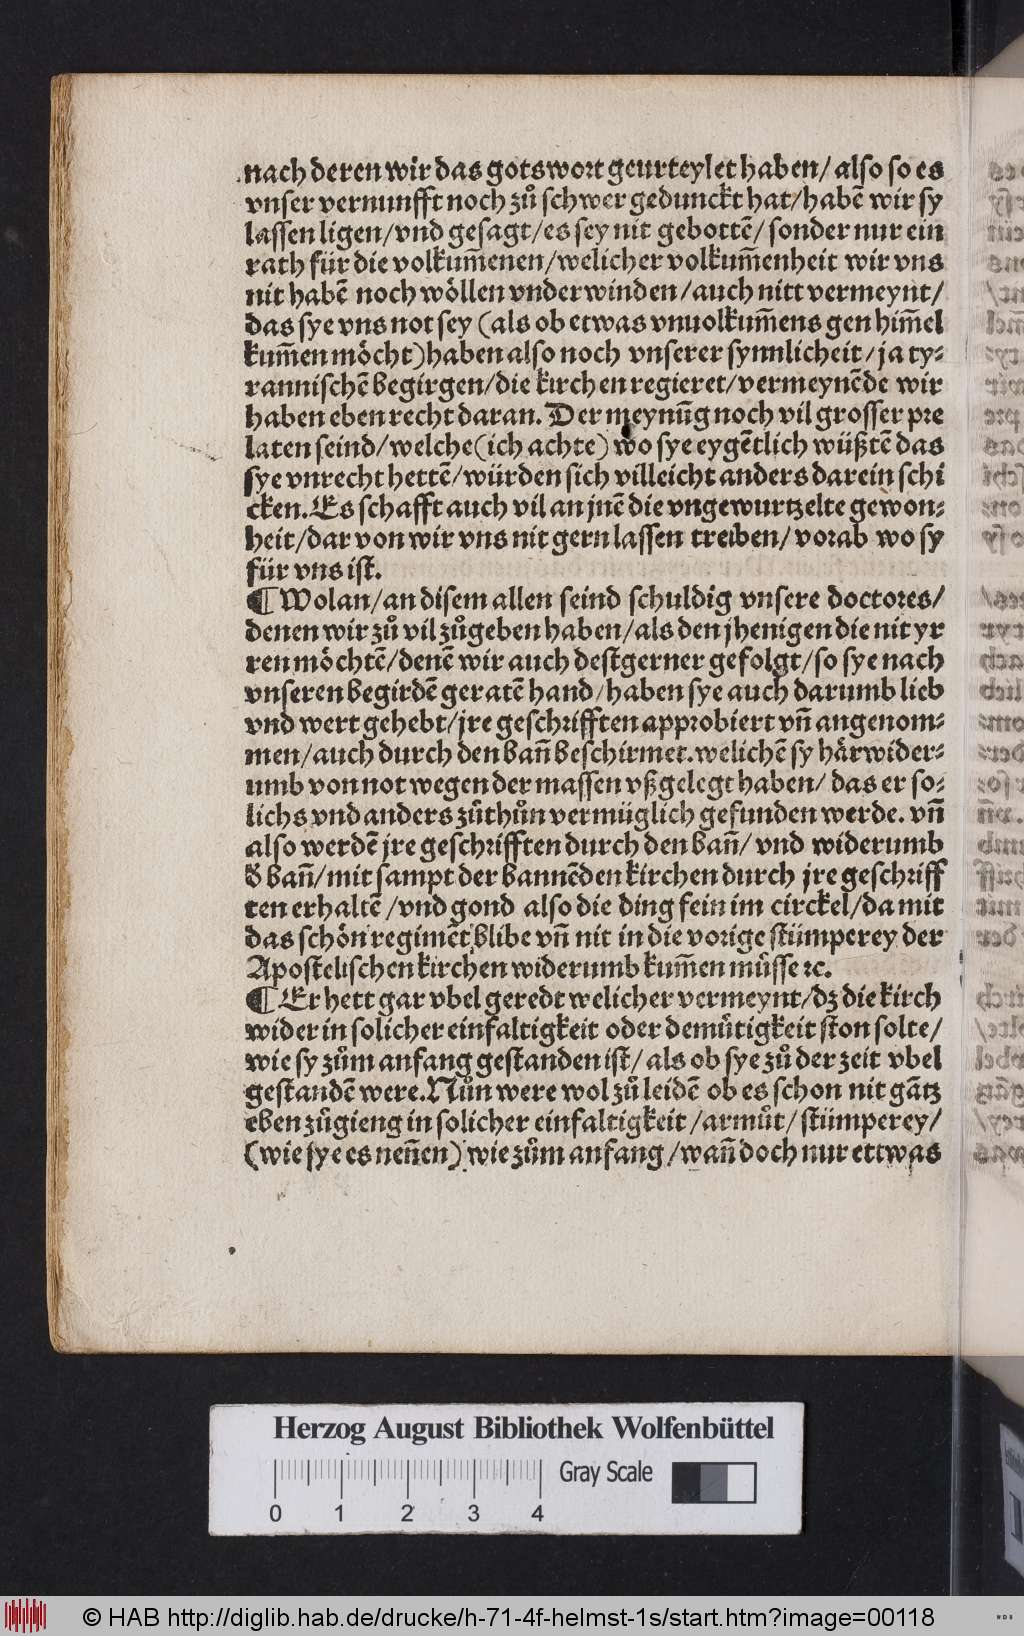 nach deren wir das gotswort geurteylet haben/ also so es
vnser vernunfft noch zů schwer gedunckt hat/ habē wir sy
lassen ligen/ vnd gesagt/ es sey nit gebottē/ sonder nur ein
rath für die volkum̄enen/ welicher volkum̄enheit wir vns
nit habē noch wöllen vnderwinden/ auch nitt vermeynt/
das sye vns not sey (als ob etwas vnuolkum̄ens gen him̄el
kum̄en möcht) haben also noch vnserer synnlicheit/ ja ty⸗
rannischē begirgen/ die kirchen regieret/ vermeynēde wir
haben eben recht daran. Der meynūg noch vil grosser pre
laten seind/ welche (ich achte) wo sye eygētlich wüßtē das
sye vnrecht hettē/ würden sich villeicht anders darein schi
cken. Es schafft auch vil an jnē die vngewurtzelte gewon⸗
heit/ dar von wir vns nit gern lassen treiben/ vorab wo sy
für vns ist.
¶ Wolan/ an disem allen seind schuldig vnsere doctores/
denen wir zů vil zůgeben haben/ als den jhenigen die nit yr
ren möchtē/ denē wir auch destgerner gefolgt/ so sye nach
vnseren begirdē geratē hand/ haben sye auch darumb lieb
vnd wert gehebt/ jre geschrifften approbiert vn̄ angenom⸗
men/ auch durch den ban̄ beschirmet. welichē sy härwider⸗
umb von not wegen der massen vßgelegt haben/ das er so⸗
lichs vnd anders zůthůn vermüglich gefunden werde. vn̄
also werdē jre geschrifften durch den ban̄/ vnd widerumb
d̄ ban̄/ mit sampt der bannēden kirchen durch jre geschriff
ten erhaltē/ vnd gond also die ding fein im circkel/ da mit
das schön regimēt blibe vn̄ nit in die vorige stümperey der
Apostelischen kirchen widerumb kum̄en müsse ꝛc.
¶ Er hett gar vbel geredt welicher vermeynt/ dz die kirch
wider in solicher einfaltigkeit oder demůtigkeit ston solte/
wie sy zům anfang gestanden ist/ als ob sye zů der zeit vbel
gestandē were. Nůn were wol zů leidē ob es schon nit gātz
eben zůgieng in solicher einfaltigkeit/ armůt/ stümperey/
(wie sye es nen̄en) wie zům anfang/ wan̄ doch nur ettwas
Herzog August Bibliothek Wolfenbüttel
Gray Scale
0 1 2 3 4
© HAB http://diglib.hab.de/drucke/h-71-4f-helmst-1s/start.htm?image=00118